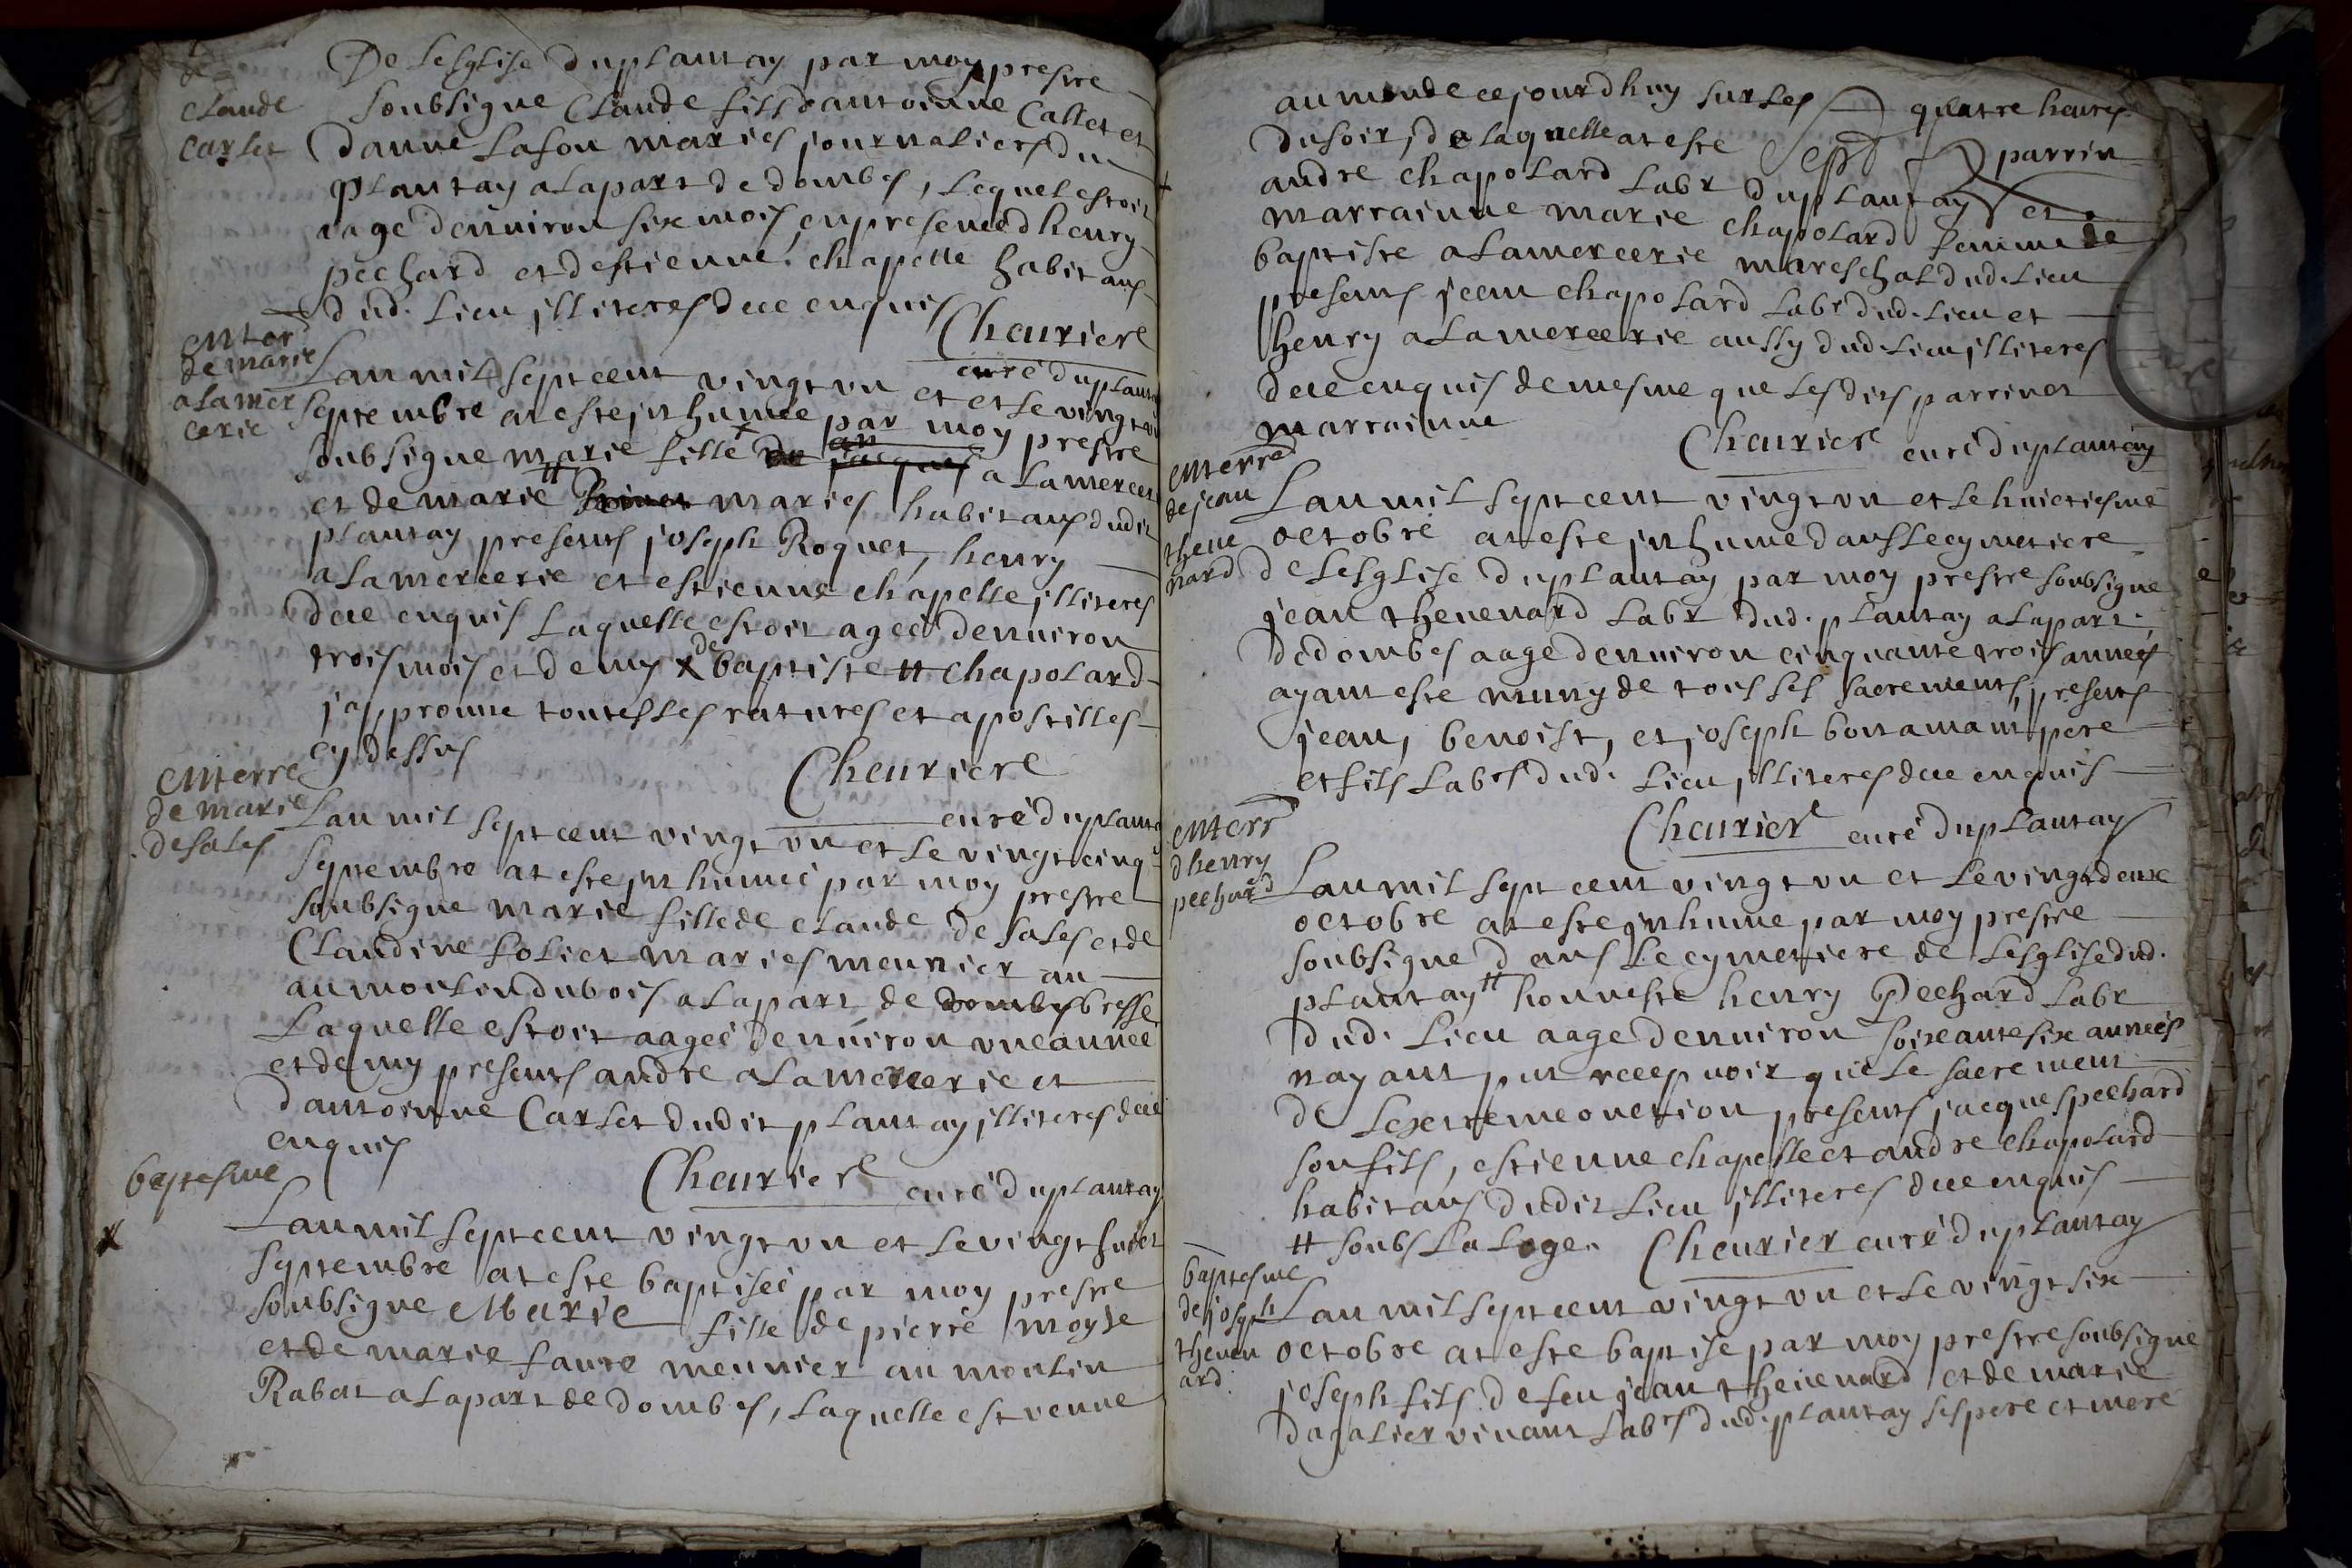 De Lesglise duplantay par moy prestre
Claude
soubsigne Claude fils dantoinne Callet et
Carlet
danne Lafon maries journaliers du
plantay alapart de dombes, Lequel estoit
aage denuiron six mois, enpresence dhenry
pechard et destienne chapelle habitans
dud. Lieu illiteres dece enquis
Cheuriere
curé duplantay
enter
de marie
alamer
cerie
Lanmil sept cent vingt vn et et Le vingt
septembre at este inhumée par moy prestre
soubsigne marie fille x de jacques alamercerie
et de marie tt maries habitans dudit
plantay presents joseph Roquet, henry
alamercerie et estienne chapelle illiteres
dece enquis Laquelle estoit agée denuiron
trois mois et demy x de baptiste tt chapolard
japprouue toutes Les ratures et apostilles
cy dessus
Cheuriere
curé duplantay
enterre
de marie
desales
Lanmil sept cent vingt vn et Le vingt cinq
septembre at este inhumeé par moy prestre
soubsigne marie fille de claude de sales et de
Claudine foliet maries meunier au
aumoulendubois alapart de dombes bresse
Laquelle estoit aageé denuiron vne année
et demy presents andre alamercerie et
dantoinne Carlet dudit plantay illiteres dece
enquis
Cheuriere curé duplantay
baptesme
x
Lanmil sept cent vingt vn et Le vingt huict
septembre at este baptiseé par moy prestre
soubsigne Marie fille de pierre moyse
et de marie faure meunier au moulin
Rabat alapart de dombes, Laquelle est venue
aumonde cejourdhuy sur Les quatre heures
dusoir, de laquelle at este parrin
andre chapolard Labr duplantay et
marrainne marie chapolard femme de
baptiste alamercerie mareschal dud. Lieu
presents jean chapolard Labr dud. Lieu et
henry alamercerie aussy dud. Lieu illiteres
dece enquis de mesme que Les dits parrin et
marrainne
Cheuriere curé duplantay
enterre
de jean
theue
nard
Lanmil sept cent vingt vn et Le huictiesme
octobre at este inhume dans Le cymetiere
de Lesglise duplantay par moy prestre soubsigne
jean theuenard Labr dud. plantay alapart
dedombes aage denuiron cinquante trois annees
ayant este muny de tous ses sacrements, presents
jean, benoist, et joseph bonamain pere
et fils Labrs dud. Lieu illiteres dece enquis
Cheurier curé duplantay
enterr
dhenry
pechard
Lanmil sept cent vingt vn et Le vingt deux
octobre at este inhume par moy prestre
soubsigne dans Le cymetiere de Lesglise dud.
plantay tt honneste henry Pechard Labr
dud. Lieu aage denuiron soixante six anneés
nayant put recepuoir que Le sacrement
de Lextremeonction presents jacques pechard
son fils, estienne chapelle et andre chapolard
habitans dudit Lieu illiteres dece enquis
tt soubs La Loge. Cheurier curé duplantay
baptesme
de joseph
theuen
ard.
Lanmil sept cent vingt vn et Le vingt six
octobre at este baptise par moy prestre soubsigne
joseph fils de feu jean theuenard et de marie
dagalier viuant Labrs dud. plantay ses pere et mere